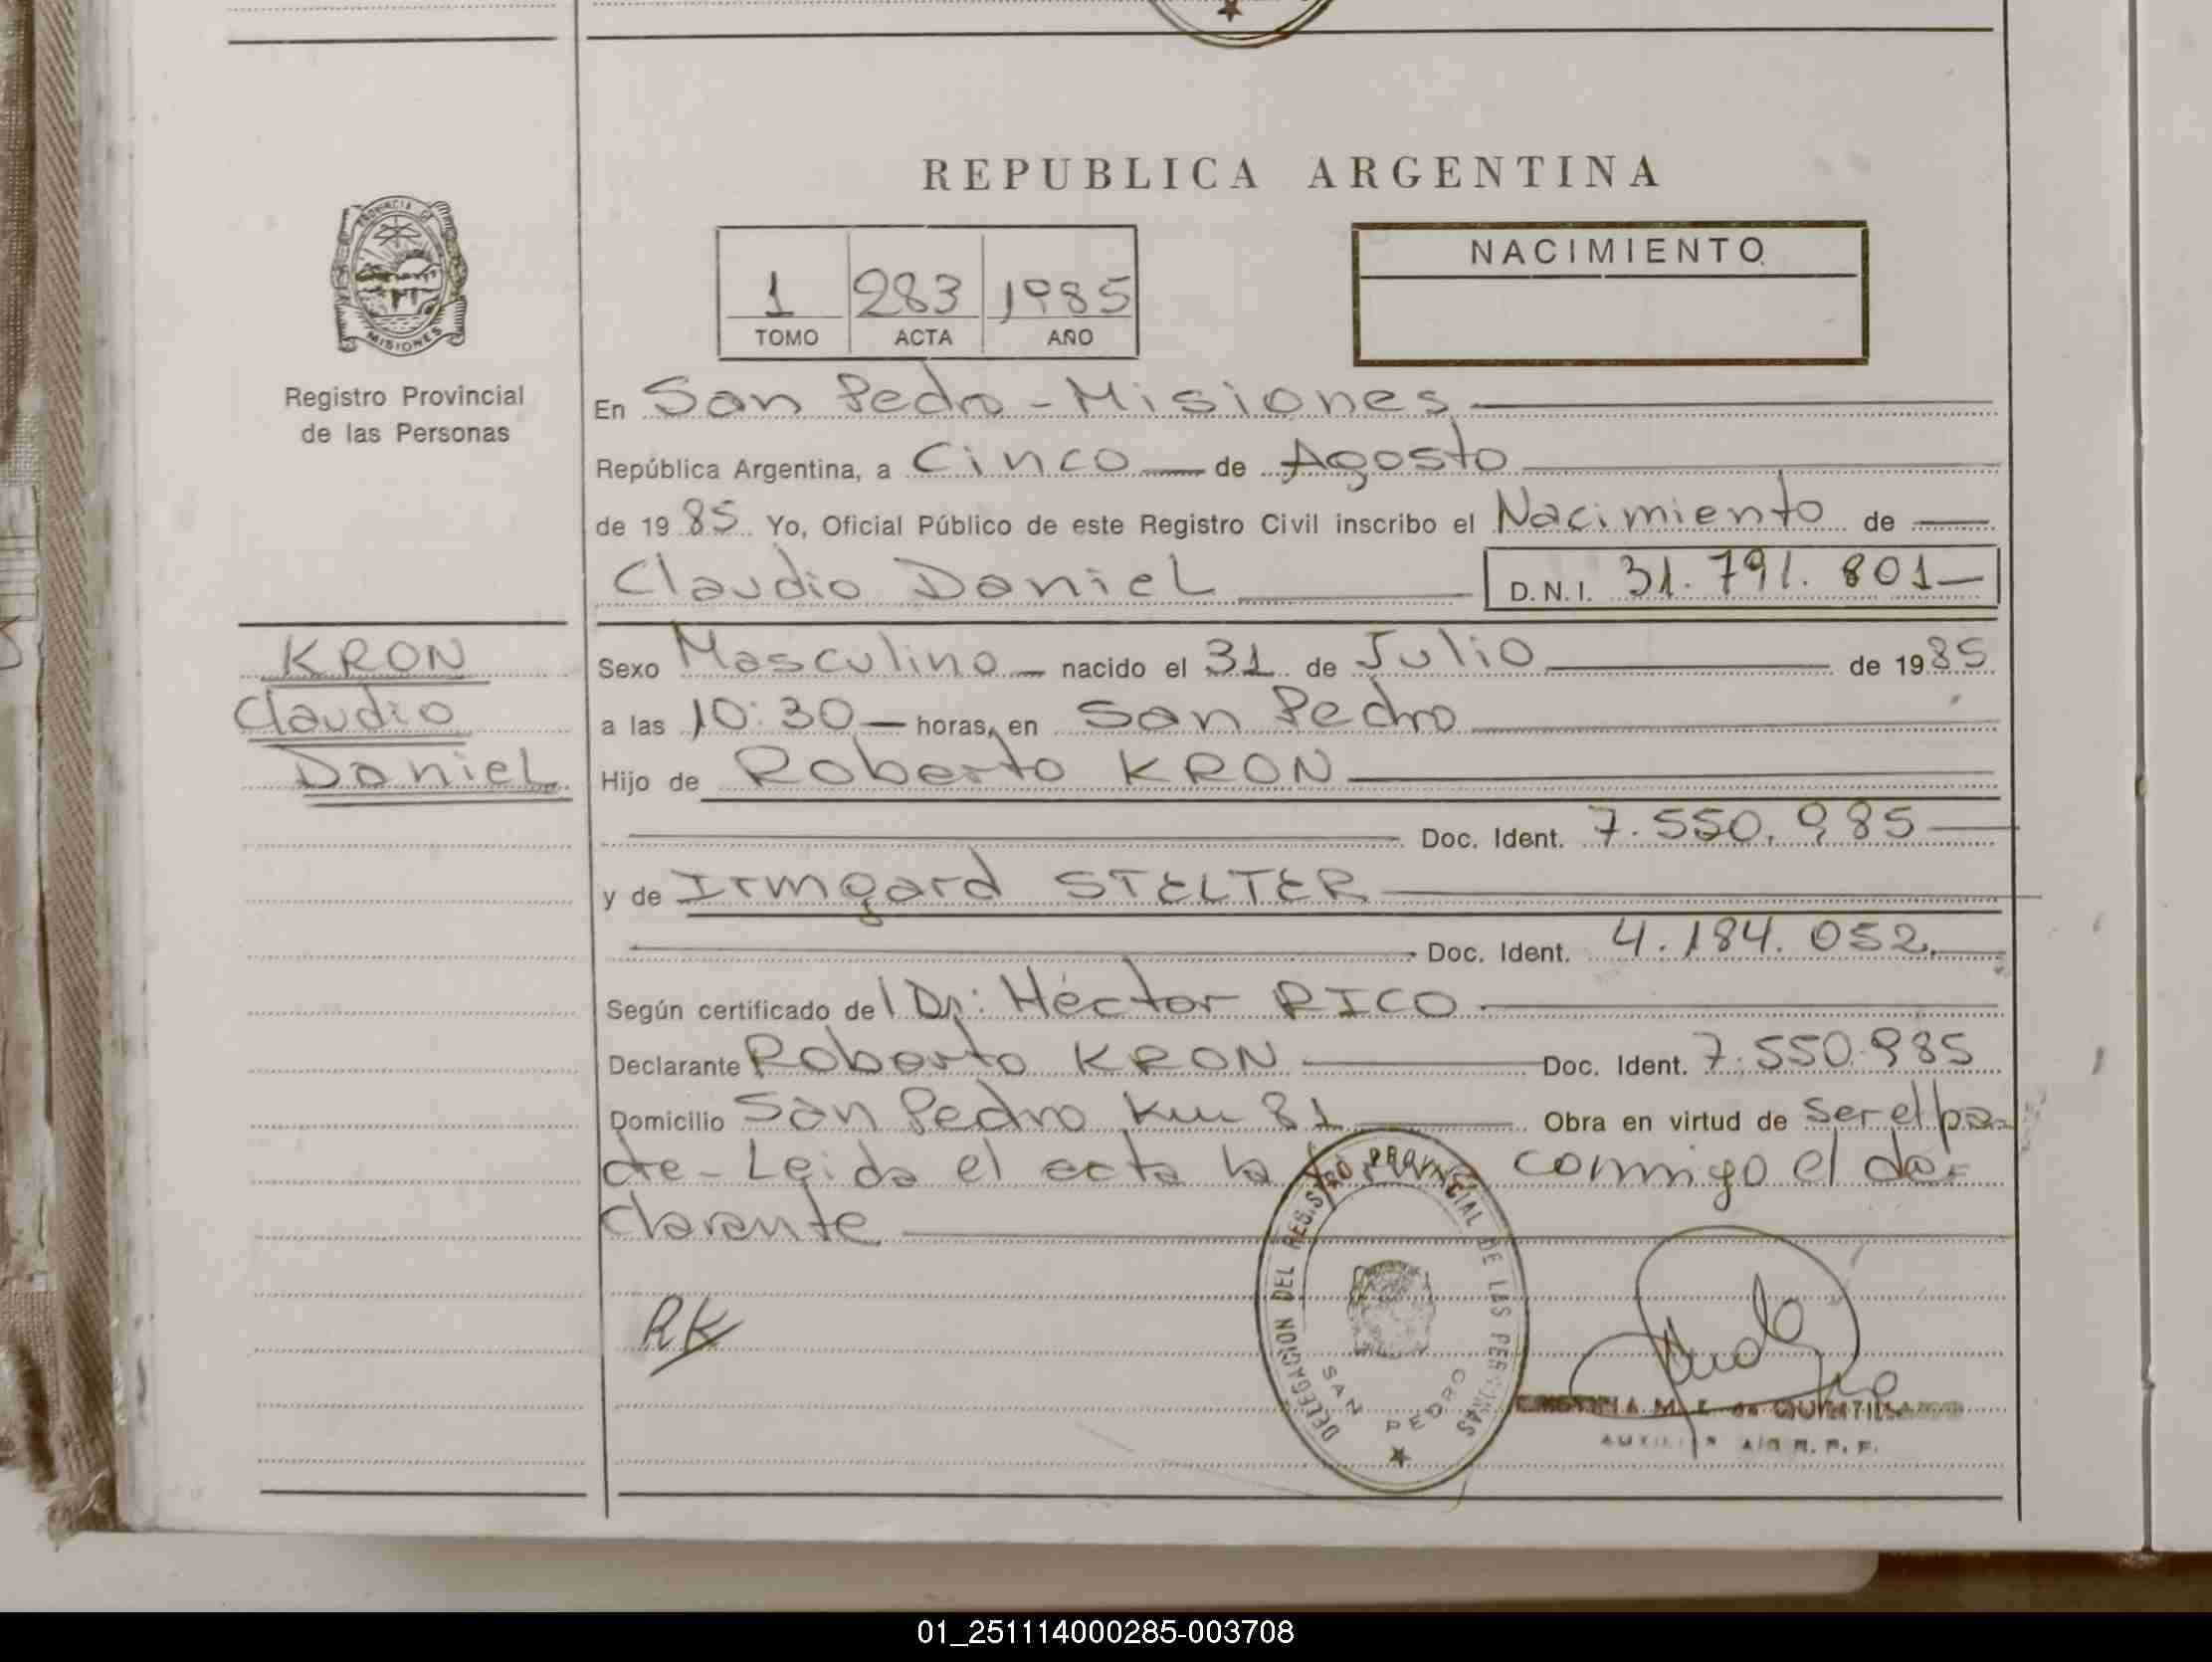 REPUBLICA ARGENTINA
PROVINCIA DE MISIONES
Registro Provincial
de las Personas
1 283 1985
TOMO ACTA AÑO
NACIMIENTO
En San Pedro - Misiones
República Argentina, a Cinco de Agosto
de 1985 Yo, Oficial Público de este Registro Civil inscribo el Nacimiento de
Claudio Daniel D.N.I. 31.791.801
KRON
Claudio
Daniel
Sexo Masculino nacido el 31 de Julio de 1985
a las 10:30 horas, en San Pedro
Hijo de Roberto KRON
Doc. Ident. 7.550.985
y de Irmgard STELTER
Doc. Ident. 4.184.052
Según certificado del Dr: Héctor RICO
Declarante Roberto KRON Doc. Ident. 7.550.985
Domicilio San Pedro Km 81 Obra en virtud de ser el pa-
dre - Leida el acta la conmigo el de-
clarante
RK
DELEGACION DEL REGISTRO PROVINCIAL DE LAS PERSONAS
SAN PEDRO
M. de QUINTILLA
AUXILIAR
01_251114000285-003708